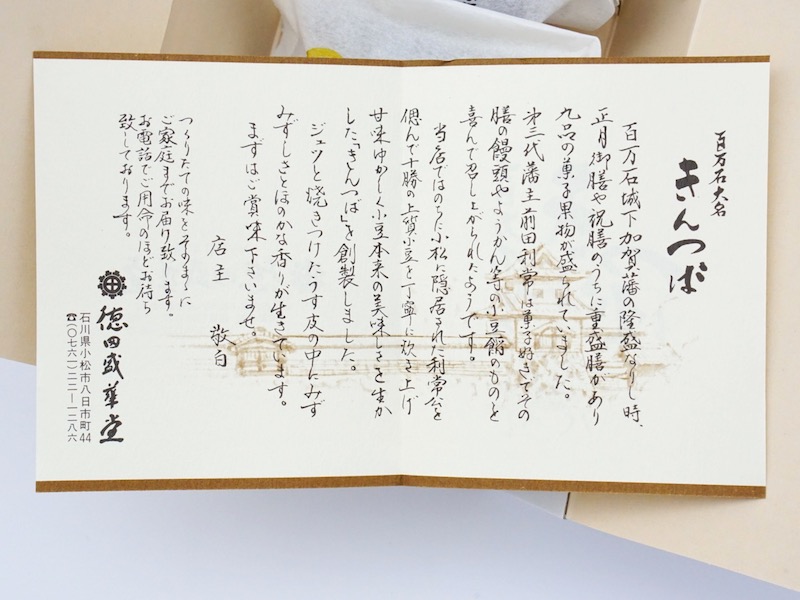 百万石大名
きんつば
百万石城下加賀藩の隆盛なりし時、
正月御膳や祝膳のうちに重盛膳があり
九品の菓子果物が盛られていました。
第三代藩主前田利常は菓子好きでその
膳の饅頭やようかん等の小豆餡のものを
喜んで召し上がられたようです。
当店ではのちに小松に隠居された利常公を
偲んで十勝の上質小豆を丁寧に炊き上げ
甘味ゆかしく小豆本来の美味しさを生か
した「きんつば」を創製しました。
ジュッと焼きつけたうす皮の中にみず
みずしさとほのかな香りが生きています。
まずはご賞味下さいませ。
店主 敬白
つくりたての味をそのまゝに
ご家庭までお届け致します。
お電話でご用命のほどお待ち
致しております。
徳田盛華堂
石川県小松市八日市町44
☎(〇七六一)二二ー一二八六